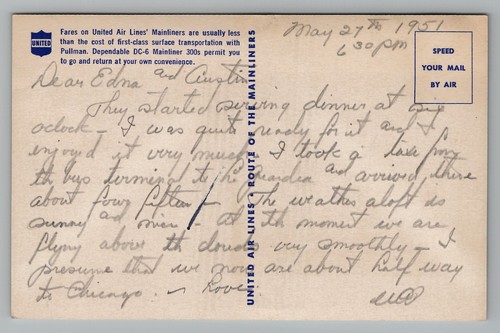 UNITED
Fares on United Air Lines' Mainliners are usually less
than the cost of first-class surface transportation with
Pullman. Dependable DC-6 Mainliner 300s permit you
to go and return at your own convenience.
May 27th 1951
6 30 PM
SPEED
YOUR MAIL
BY AIR
Dear Edna and Austin
They started serving dinner at six
oclock - I was quite ready for it and I
enjoyed it very much I took a taxi from
th bus terminal to and arrived there
about four fifteen - The weather aloft is
sunny and nice - at th moment we are
flying above th clouds very smoothly - I
presume that we now are about half way
to Chicago. - Love
UNITED AIR LINES • ROUTE OF THE MAINLINERS